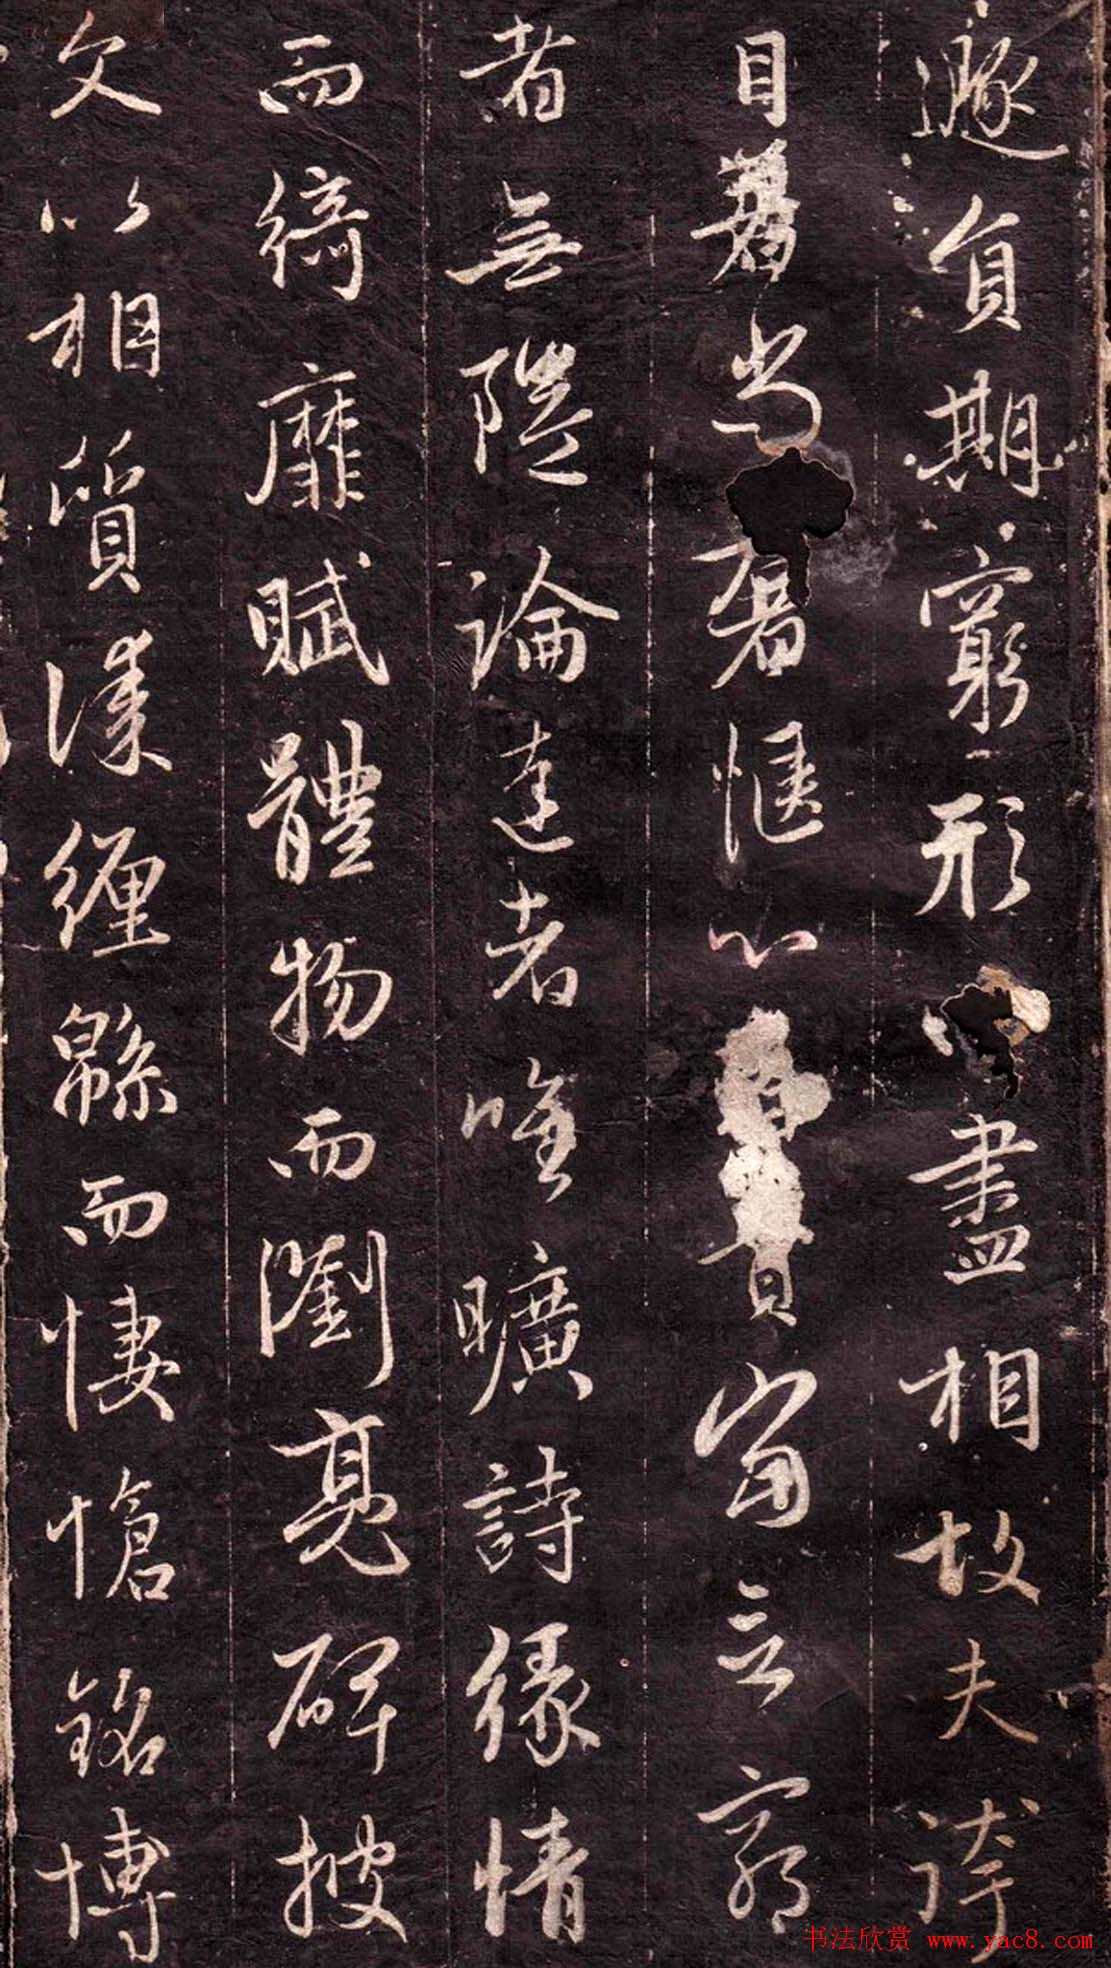 遯員期窮形盡相故夫誇
目者尚奢愜心者貴當言窮
者無隘論達者唯曠詩緣情
而綺靡賦體物而瀏亮碑披
文以相質誄纏緜而悽愴銘博
书法欣赏 www.yac8.com